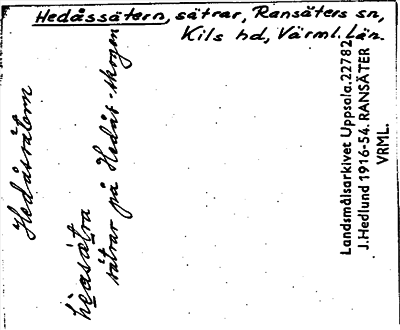 Hedåssätern, sätrar, Ransäters sn,
Kils hd, Värml. Län.
Hedåsrätern
hèasǻtra
sätrar på Hedås-skogen
Landsmålsarkivet Uppsala. 22782
J. Hedlund 1916-54. RANSÄTER
VRML.